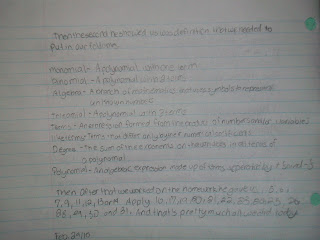 Then the second he showed us was definition that we needed to
Put in our folders.
Monomial- A polynomial with one term
Binomial- A polynomial with 2 terms
Algebra- A branch of mathematics that uses symbols to represent
unknown numbers
Trinomial- A polynomial with 3 terms
Terms- An expression formed from the product of numbers and/or variables
Like terms- Terms that differ only by their numerical coefficients
Degree- The sum of the exponents on the variables in all terms of
a polynomial
Polynomial- An algebraic expression made up of terms
Then After that we worked on the homework he gave
7, 9, 11, 12, Apply 10, 21, 22, 26
28, 29, 30 and 31. And that's pretty much all we did today